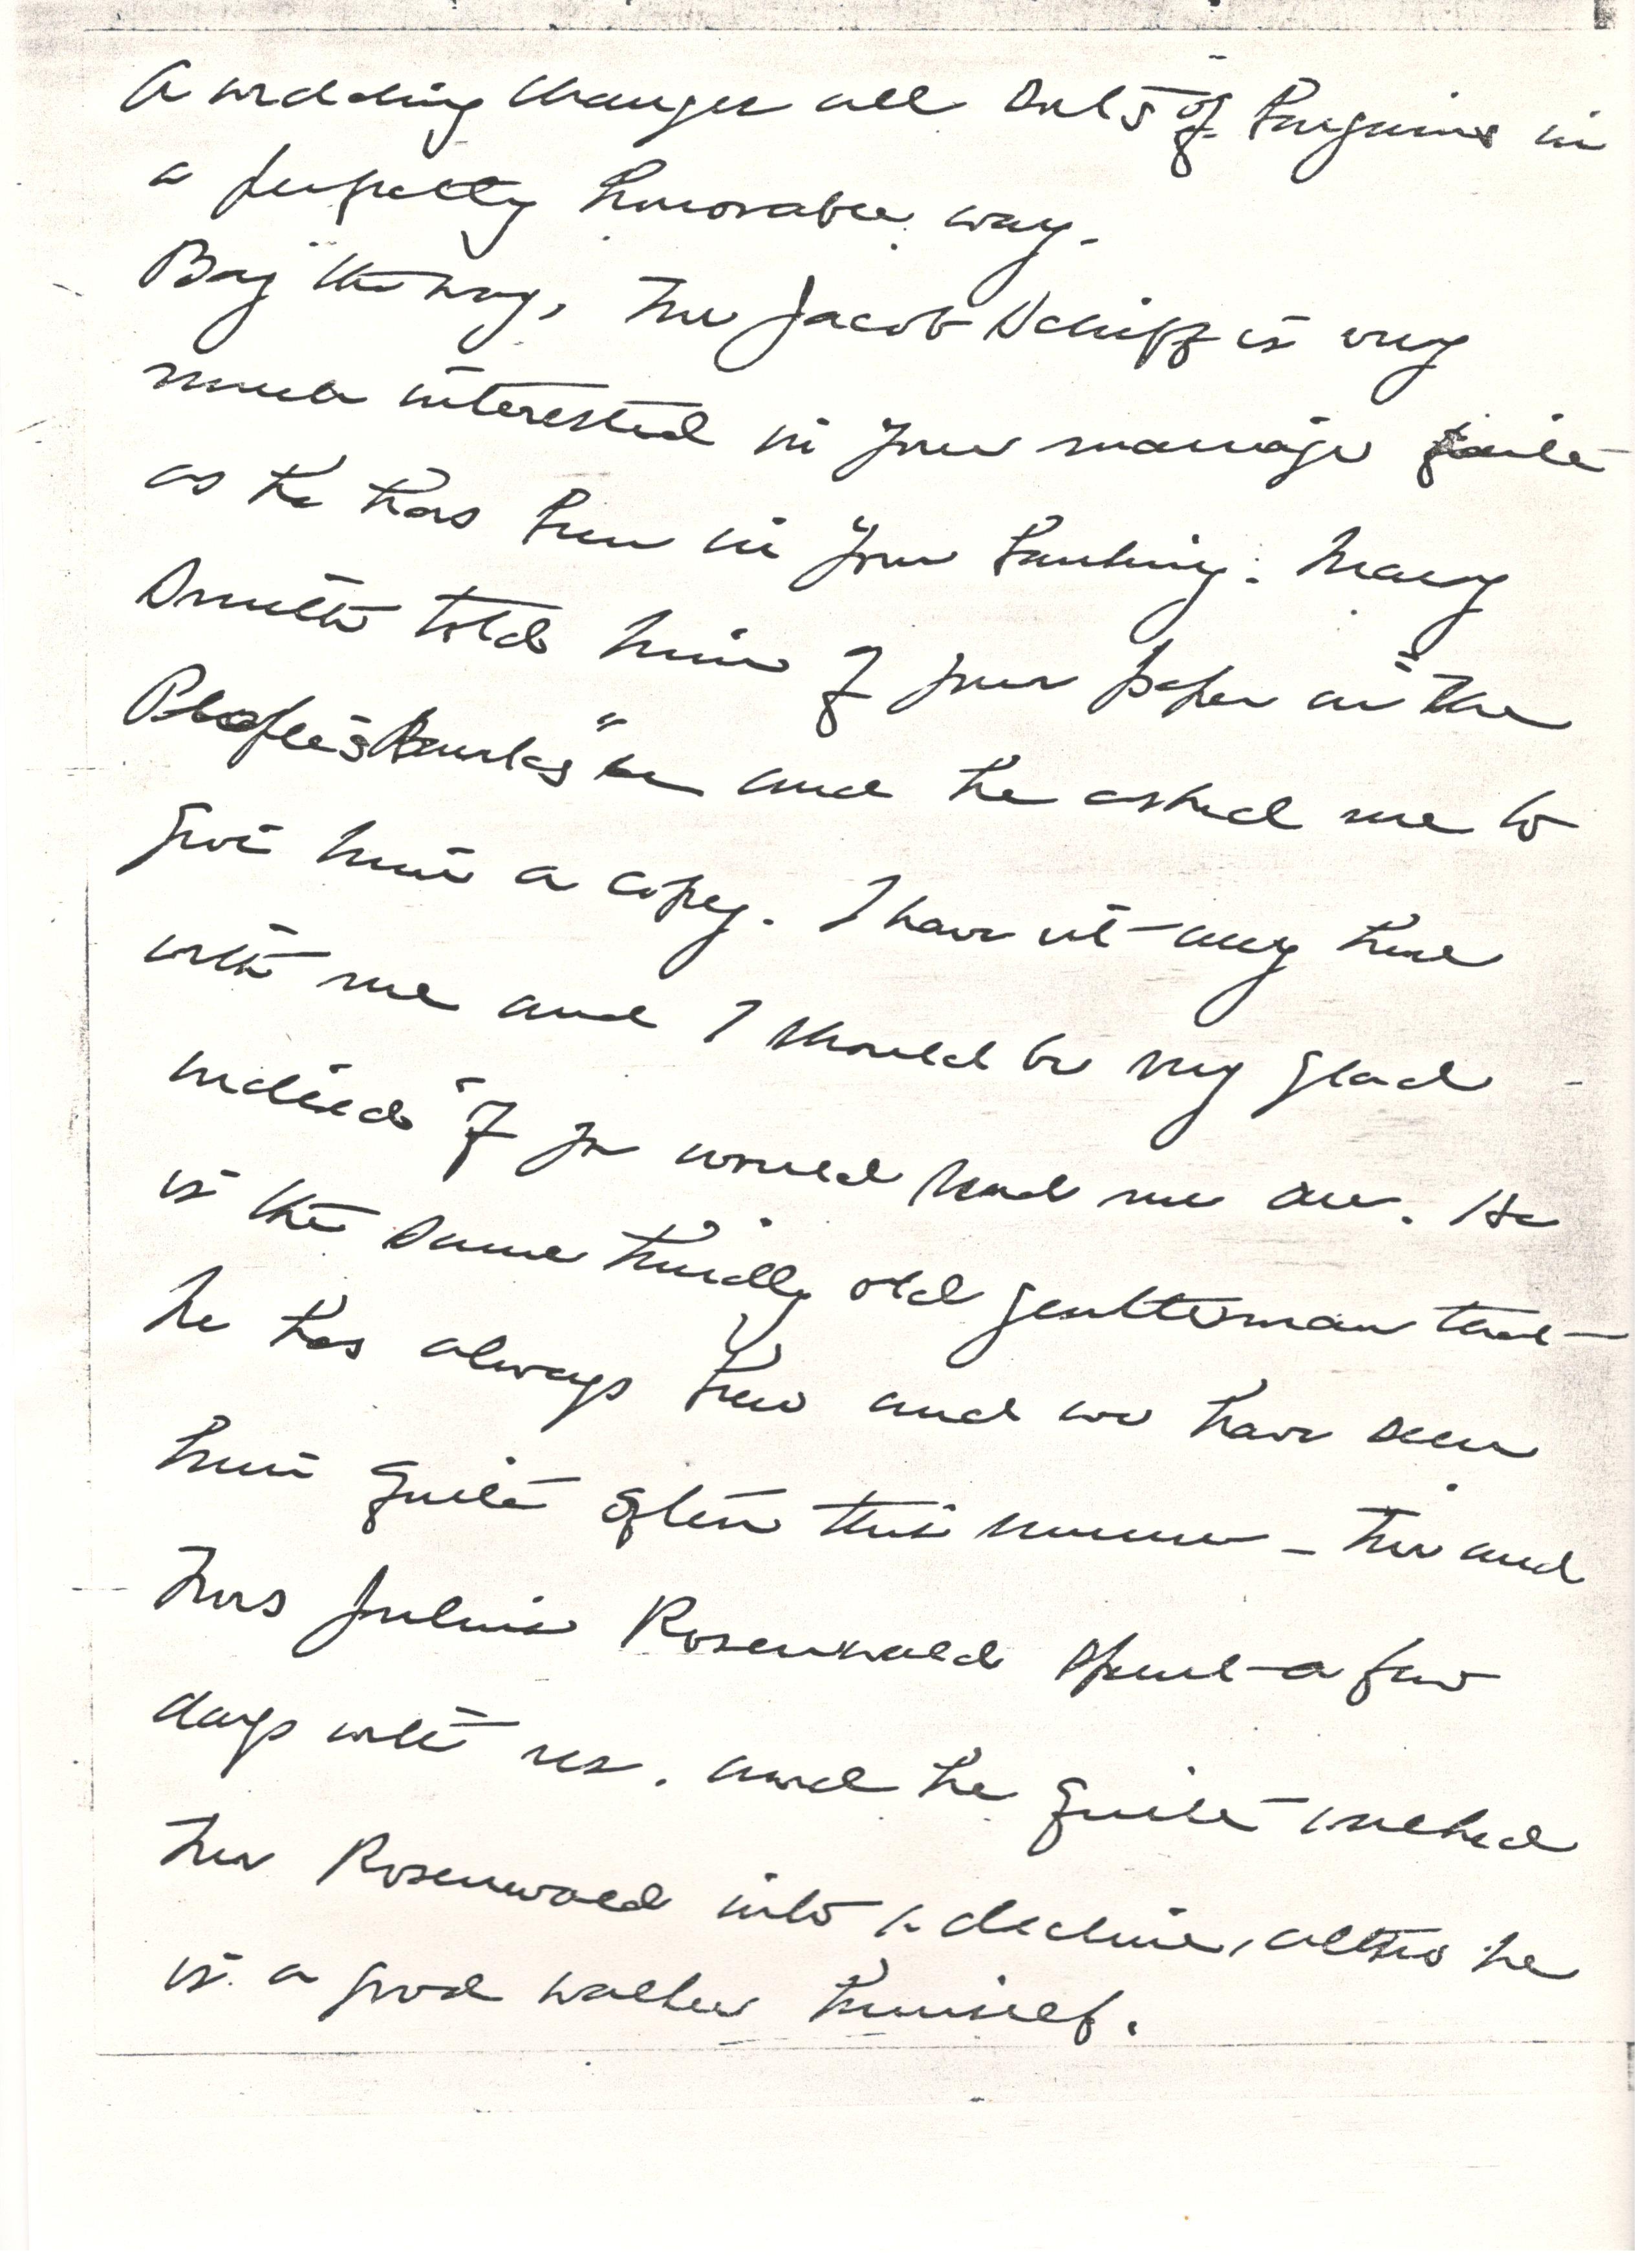 A wedding changes all sorts of bargains in
a perfectly honorable way.
By the way, Mr Jacob Schiff is very
much interested in your marriage quite
as he has been in your banking. Mary
Smith told him of your paper on "the
People's Banks" and he asked me to
give him a copy. I have not any here
with me and I should be very glad
indeed if you would send me one. He
is the same kindly old gentleman that
he has always been and we have seen
him quite often this summer – Mr and
Mrs Julius Rosenwald spent a few
days with us. and he quite walked
Mr Rosenwald into a decline, altho he
is a good walker himself.